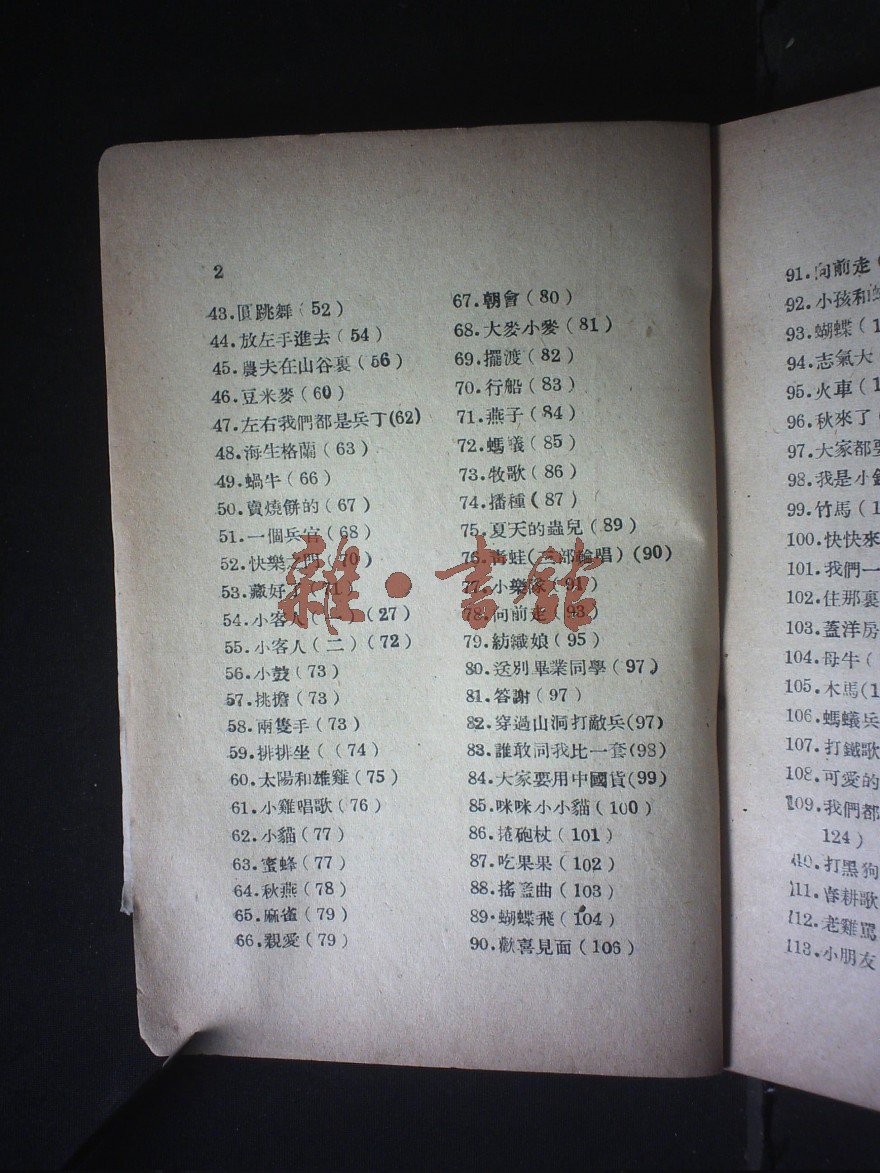 2
43.跳舞(52)
44.放左手進去(54)
45.農夫在山谷裏(56)
46.豆米麥(60)
47.左右我們都是兵丁(62)
48.海生格蘭(63)
49.蝸牛(66)
50.賣燒餅的(67)
51.一個兵官(68)
52.快樂之(70)
53.藏好了(71)
54.小客人(一)(27)
55.小客人(二)(72)
56.小鼓(73)
57.挑擔(73)
58.兩隻手(73)
59.排排坐((74)
60.太陽和雄雞(75)
61.小雞唱歌(76)
62.小貓(77)
63.蜜蜂(77)
64.秋燕(78)
65.麻雀(79)
66.親愛(79)
67.朝會(80)
68.大麥小麥(81)
69.擺渡(82)
70.行船(83)
71.燕子(84)
72.螞蟻(85)
73.牧歌(86)
74.播種(87)
75.夏天的蟲兒(89)
76.青蛙(部輪唱)(90)
77.小樂隊(91)
78.向前走(93)
79.紡織娘(95)
80.送別畢業同學(97)
81.答謝(97)
82.穿過山洞打敵兵(97)
83.誰敢同我比一套(98)
84.大家要用中國貨(99)
85.咪咪小小貓(100)
86.捲砲杖(101)
87.吃果果(102)
88.搖籃曲(103)
89.蝴蝶飛(104)
90.歡喜見面(106)
雜·書館
91.向前走(
92.小孩和
93.蝴蝶(1
94.志氣大
95.火車(1
96.秋來了(
97.大家都要
98.我是小
99.竹馬(1
100.快快來
101.我們一
102.住那裏
103.蓋洋房
104.母牛(
105.木馬(1
106.螞蟻兵
107.打鐵歌
108.可愛的
109.我們都
124)
110.打黑狗
111.春耕歌
112.老雞罵
113.小朋友